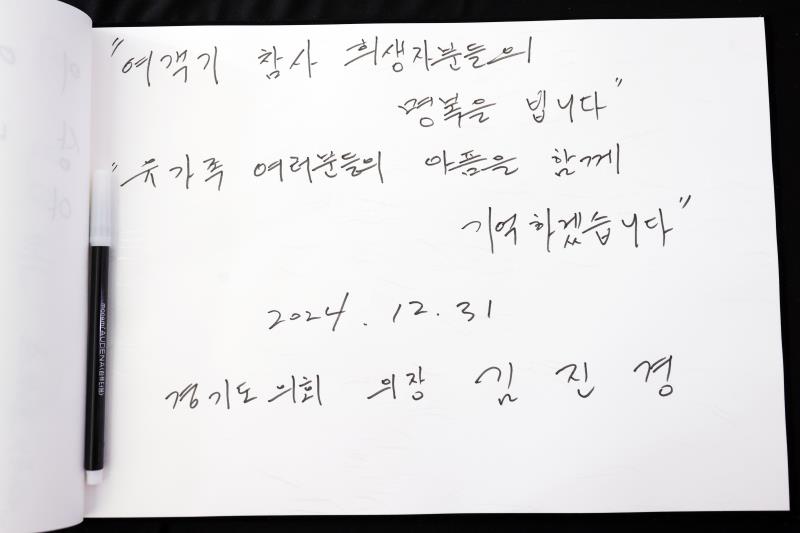 "여객기 참사 희생자분들의
명복을 빕니다"
"유가족 여러분들의 아픔을 함께
기억하겠습니다"
2024. 12. 31
경기도의회 의장 김진경
monami AUDENA